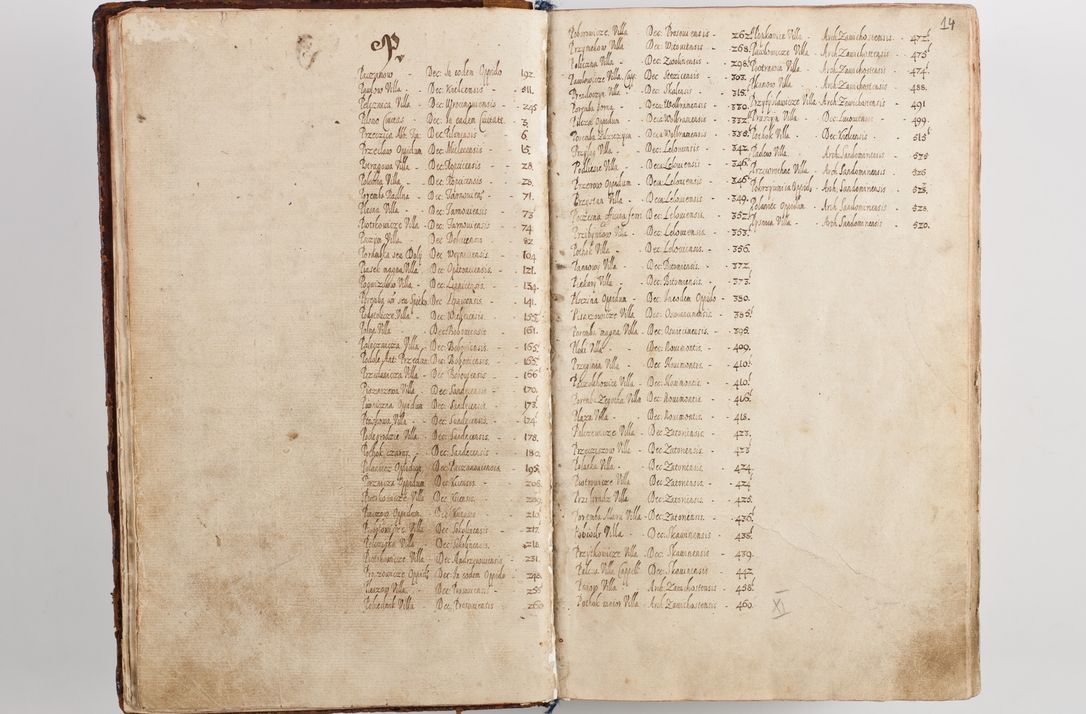 P
Paczanow - Dec: In eodem Oppido 192.
Pawlow Villa - Dec: Kielcensis - 511.
Pilcznica Villa - Dec: Wrocimouiensis - 245
Pilsno Ciuitas - Dec: In eadem Ciuitate. 3.
Przeczica Dec: Pilsnensis - 6.
Przeclaw Oppidum Dec: Mielecensis - 15.
Pstragowa Villa - Dec: Ropcicensis - 28.
Polomia Villa - Dec: Ropcicensis - 28.
Poremba Radlna - Dec: Tarnouiens - 71.
Plesna Villa - Dec: Tarnouiensis - 73
Piotrkowice Villa - Dec: Tarnouiensis - 74.
Dec: Dobcicensis - 82
Dec: Woynicensis - 104.
Piasek magna Villa - Dec: Opatouiensis - 121.
Pogwizdow Villa - Dec: Lipnicensis - 134.
Dec: Lipnicensis - 141.
Dec: Wielicensis - 155
Villa - Dec: Bobouiensis - 161.
Villa - Dec: Bobouiensis - 165
Podole Dec: Boboviensis - 165
Przydonica Villa - Dec: Bobouiensis - 166
Pisarzowa Villa - Dec: Sandecensis - 170.
Piwniczna Oppidum - Dec: Sandecensis - 173.
Ptaszkowa Villa - Dec: Sandecensis - 174
Podegrodzie Villa - Dec: Sandecensis - 178.
Pothok czarny - Dec: Sandecensis - 180.
Polaniec Oppidum - Dec: Paczanouiensis - 195.
Oppidum - Dec: Kiiensis - 208.
Piotrkowicze Villa - Dec: Kiiensis - 209.
Pinczow Oppidum - Dec: Kiiensis - 210
Villa - Dec: Sokolinensis - 217
Villa - Dec: Sokolinensis - 218.
Piotrkowicze Villa - Dec: Andrzeouiensis - 231.
Proszowicze Oppid Dec: In eodem Oppido 248.
Villa - Dec: Prosouiensis - 255
Villa - Dec: Prosouiensis - 260
14
Poborowicze Villa Dec: Prosouiensis - 262.
Przemykow Villa - Dec: Witouiensis - 268.
Policzna Villa - Dec: Zwolinensis - 298.
Pawlowicze Villa - Dec: Stezicensis - 303.
Przedborzyn Villa - Dec: Skalensis - 315.
Poremba gorna - Dec: Wolbramensis - 330.
Pilcza Oppidum Dec: Wolbramensis - 332.
Poremba Dzierzyna Dec: Wolbramensis - 335
Przylek Villa - Dec: Leloviensis - 342.
Podlesie Villa - Dec: Leloviensis - 346
Przerow Oppidum - Dec: Leloviensis - 346
Przystan Villa - Dec: Leloviensis - 349.
Poczesna Dec: Leloviensis - 352
Przibynow Villa - Dec: Leloviensis - 353
Pothok Villa - Dec: Leloviensis - 356.
Panowy Villa - Dec: Bitomiensis - 372.
Piekary Villa - Dec: Bitomiensis - 373.
Pszczina Oppidum - Dec: In eodem Oppido - 380.
Pisarzowicze Villa - Dec: Oswiecimensis - 386
Poremba magna Villa - Dec: Osuiecimensis. - 395.
Ploki Villa - Dec: Nouimontis - 409.
Przeginia Villa - Dec: Nouimontis - 410
Paczolthowice Villa - Dec: Nouimontis - 410
Poremba Zegotha Villa - Dec: Nouimontis - 416
Plaza Villa - Dec: Nouimontis - 418.
Palczowicze Villa - Dec: Zatoriensis - 423.
Przeciszow Villa - Dec: Zatoriensis - 423
Polanka Villa - Dec: Zatoriensis - 424
Piotrowicze Villa - Dec: Zatoriensis - 424
Villa - Dec: Zatoriensis - 425.
Poremba Villa - Dec: Zatoriensis - 426
Pobiedr Villa - Dec: Skawinensis - 438.
Przytkowicze Villa - Dec: Skawinensis - 439.
Palcza Villa Dec: Skawinensis - 442
Pniow Villa - Arch: Zawichostensis - 458
Pothok maior Villa - Arch: Zawichostensis - 460.
XI
Penkowice Villa - Arch: Zawichostensis - 472
Pawlowicze Villa - Arch: Zawichostensis - 473
Piotrawin Villa - Arch: Zawichostensis - 474
Pkanow Villa - Arch: Zawichostensis - 488.
Przybyslawicze Villa - Arch: Zawichostensis - 491
Pruszyn Villa - Dec: Lucouiensis - 499.
Pothok Villa - Dec: Kielcensis - 513
Villa - Arch: Sandomiriensis - 525
Villa - Arch: Sandomiriensis - 526
Pokrzywnica Oppid - Arch: Sandomiriensis - 528.
Polaniec Oppidum - Arch: Sandomiriensis - 528.
Villa - Arch: Sandomiriensis - 520.